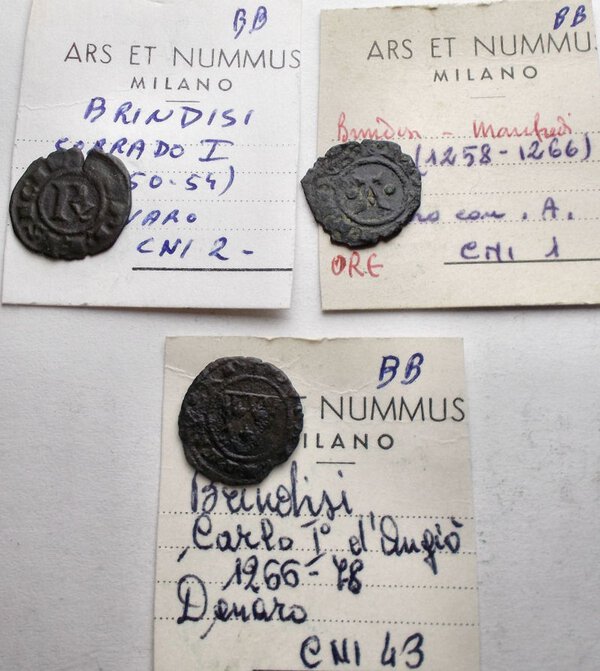 BB
ARS ET NUMMUS
MILANO
BRINDISI
CORRADO I
50-54)
VARO
CNI 2-
BB
ARS ET NUMMU
MILANO
Brindisi - Manfredi
(1258-1266)
ro con . A.
CNI 1
ORE
BB
T NUMMUS
ILANO
Brindisi
Carlo I° d'Angiò
1266-78
Denaro
CNI 43